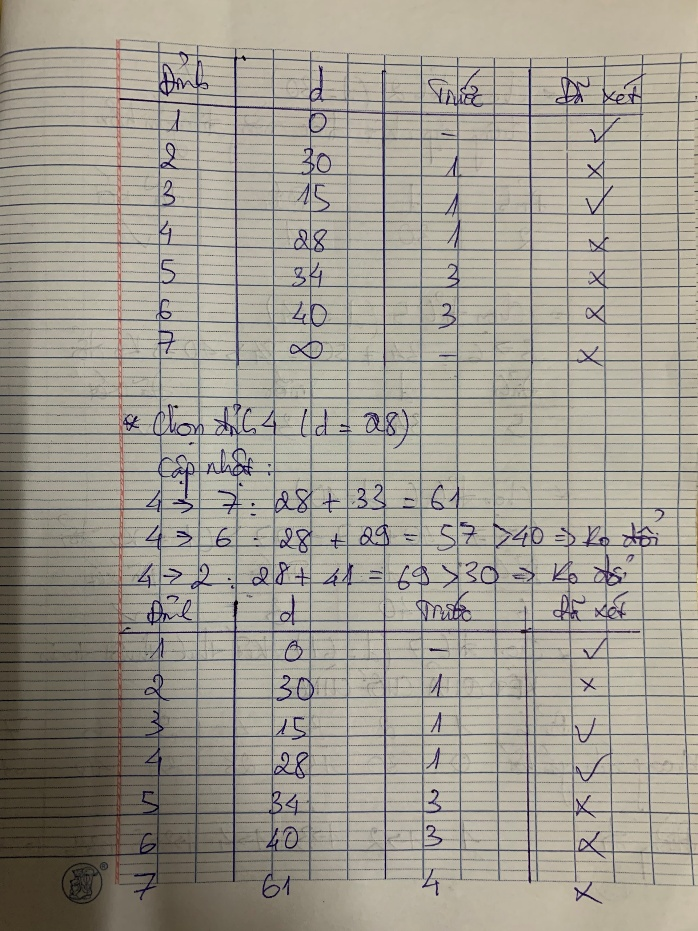 Đỉnh d Trước Đã xét
1 0 - ✓
2 30 1 x
3 15 1 ✓
4 28 1 x
5 34 3 x
6 40 3 x
7 ∞ - x
* Chọn đỉnh 4 (d = 28)
Cập nhật :
4 → 7 : 28 + 33 = 61
4 → 6 : 28 + 29 = 57 > 40 => Ko đổi
4 → 2 : 28 + 41 = 69 > 30 => Ko đổi
Đỉnh d Trước Đã xét
1 0 - ✓
2 30 1 x
3 15 1 ✓
4 28 1 ✓
5 34 3 x
6 40 3 x
7 61 4 x